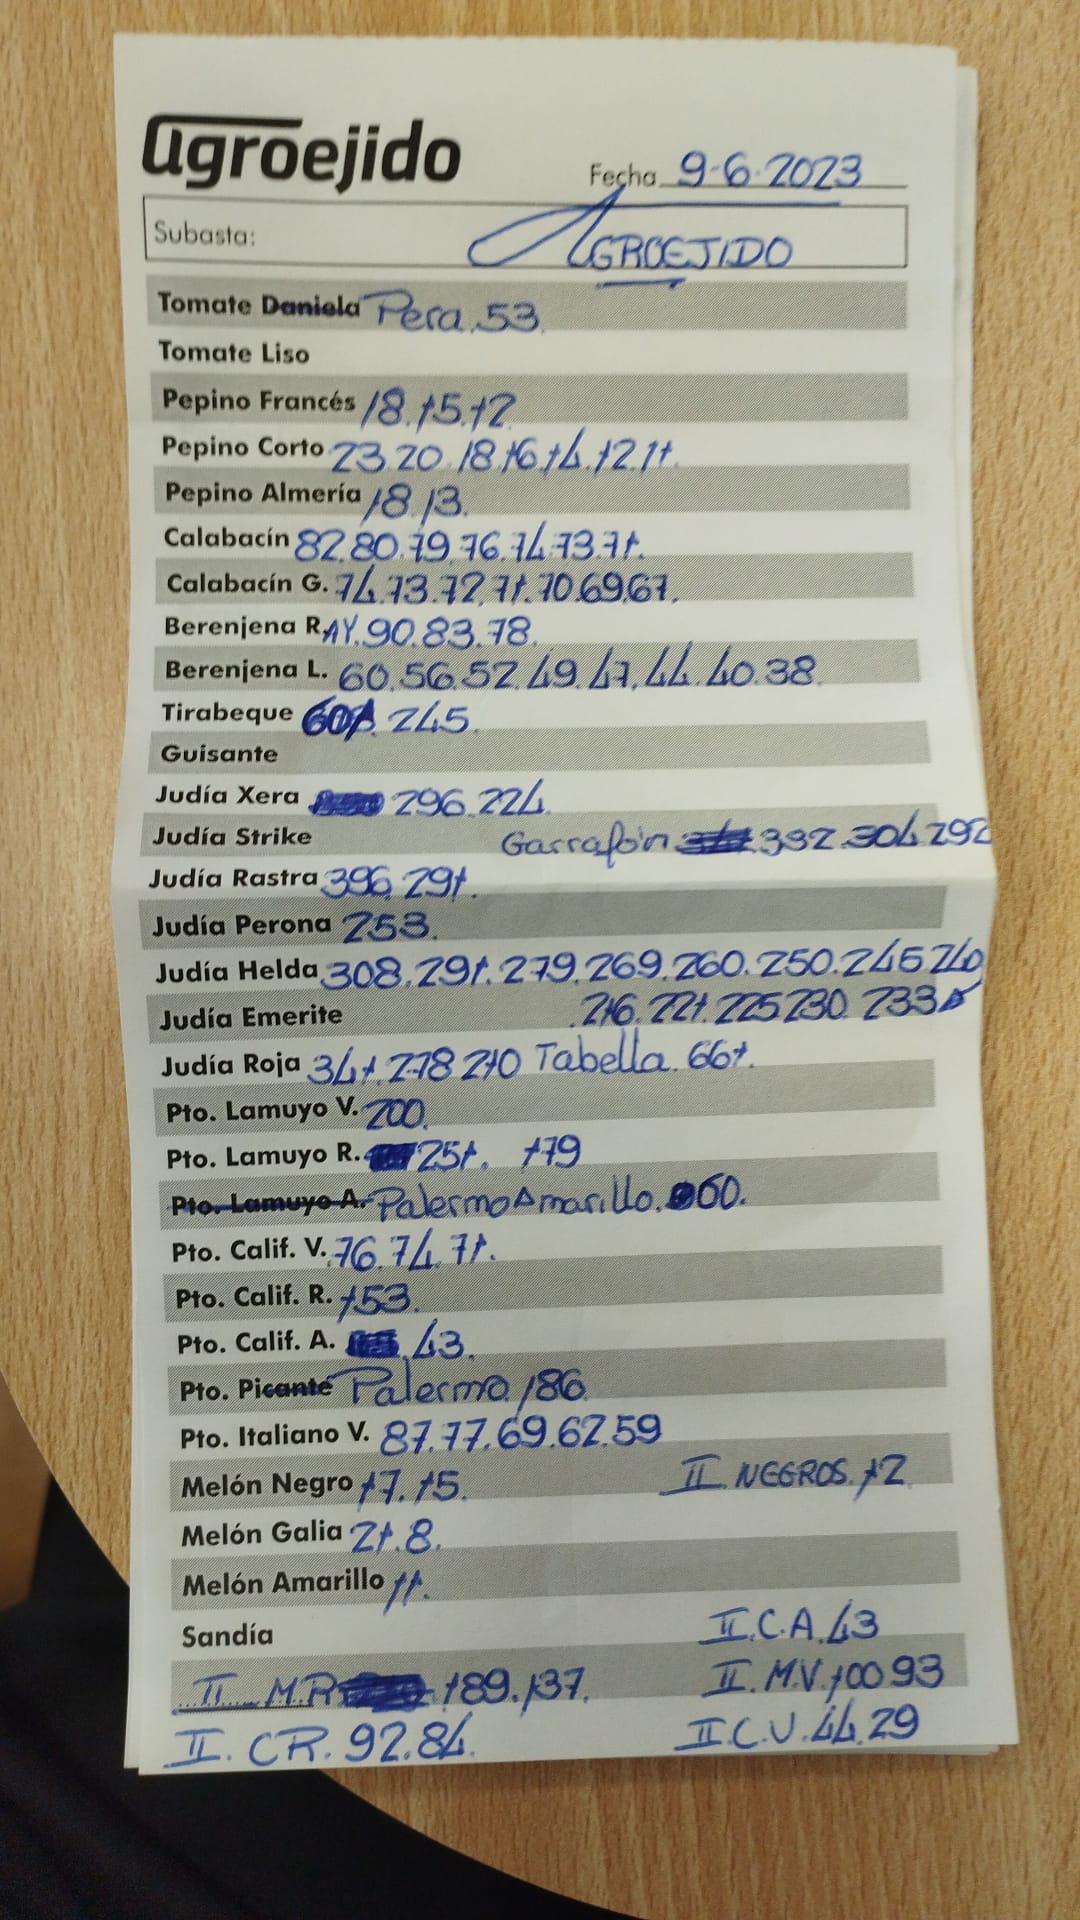 agroejido
Fecha 9-6-2023
Subasta: AGROEJIDO
Tomate Daniela Pera. 53.
Tomate Liso
Pepino Francés 18.15.12
Pepino Corto 23.20.18.16.14.12.11.
Pepino Almería 18.13.
Calabacín 82.80.79.76.74.73.71.
Calabacín G. 74.73.72.71.70.69.67.
Berenjena R. AY.90.83.78.
Berenjena L. 60.56.52.49.47.44.40.38.
Tirabeque 245.
Guisante
Judía Xera 296.224.
Judía Strike Garrafón 332.304.292
Judía Rastra 396.291.
Judía Perona 253.
Judía Helda 308.291.279.269.260.250.245.240
Judía Emerite .216.221.225.230.233
Judía Roja 341.278.210 Tabella. 661.
Pto. Lamuyo V. 200.
Pto. Lamuyo R. 251. 179
Pto. Lamuyo A. Palermo Amarillo. 60.
Pto. Calif. V. 76.74.71.
Pto. Calif. R. 153.
Pto. Calif. A. 43.
Pto. Picante Palermo. 186.
Pto. Italiano V. 87.77.69.62.59
Melón Negro 17.15. II NEGROS. 12
Melón Galia 21.8.
Melón Amarillo 11.
Sandía II.C.A.43
II M.R 189.137. II.M.V.100 93
II. CR. 92.84. II.C.V.44.29